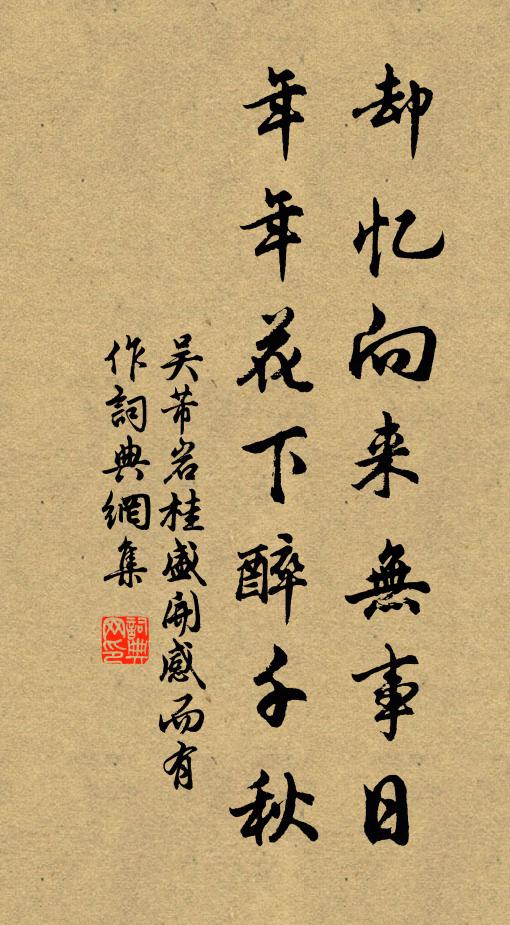 却忆向来無事日
年年花下醉千秋
吴芾岩桂盛开感而有
作詞典網集
詞典网印